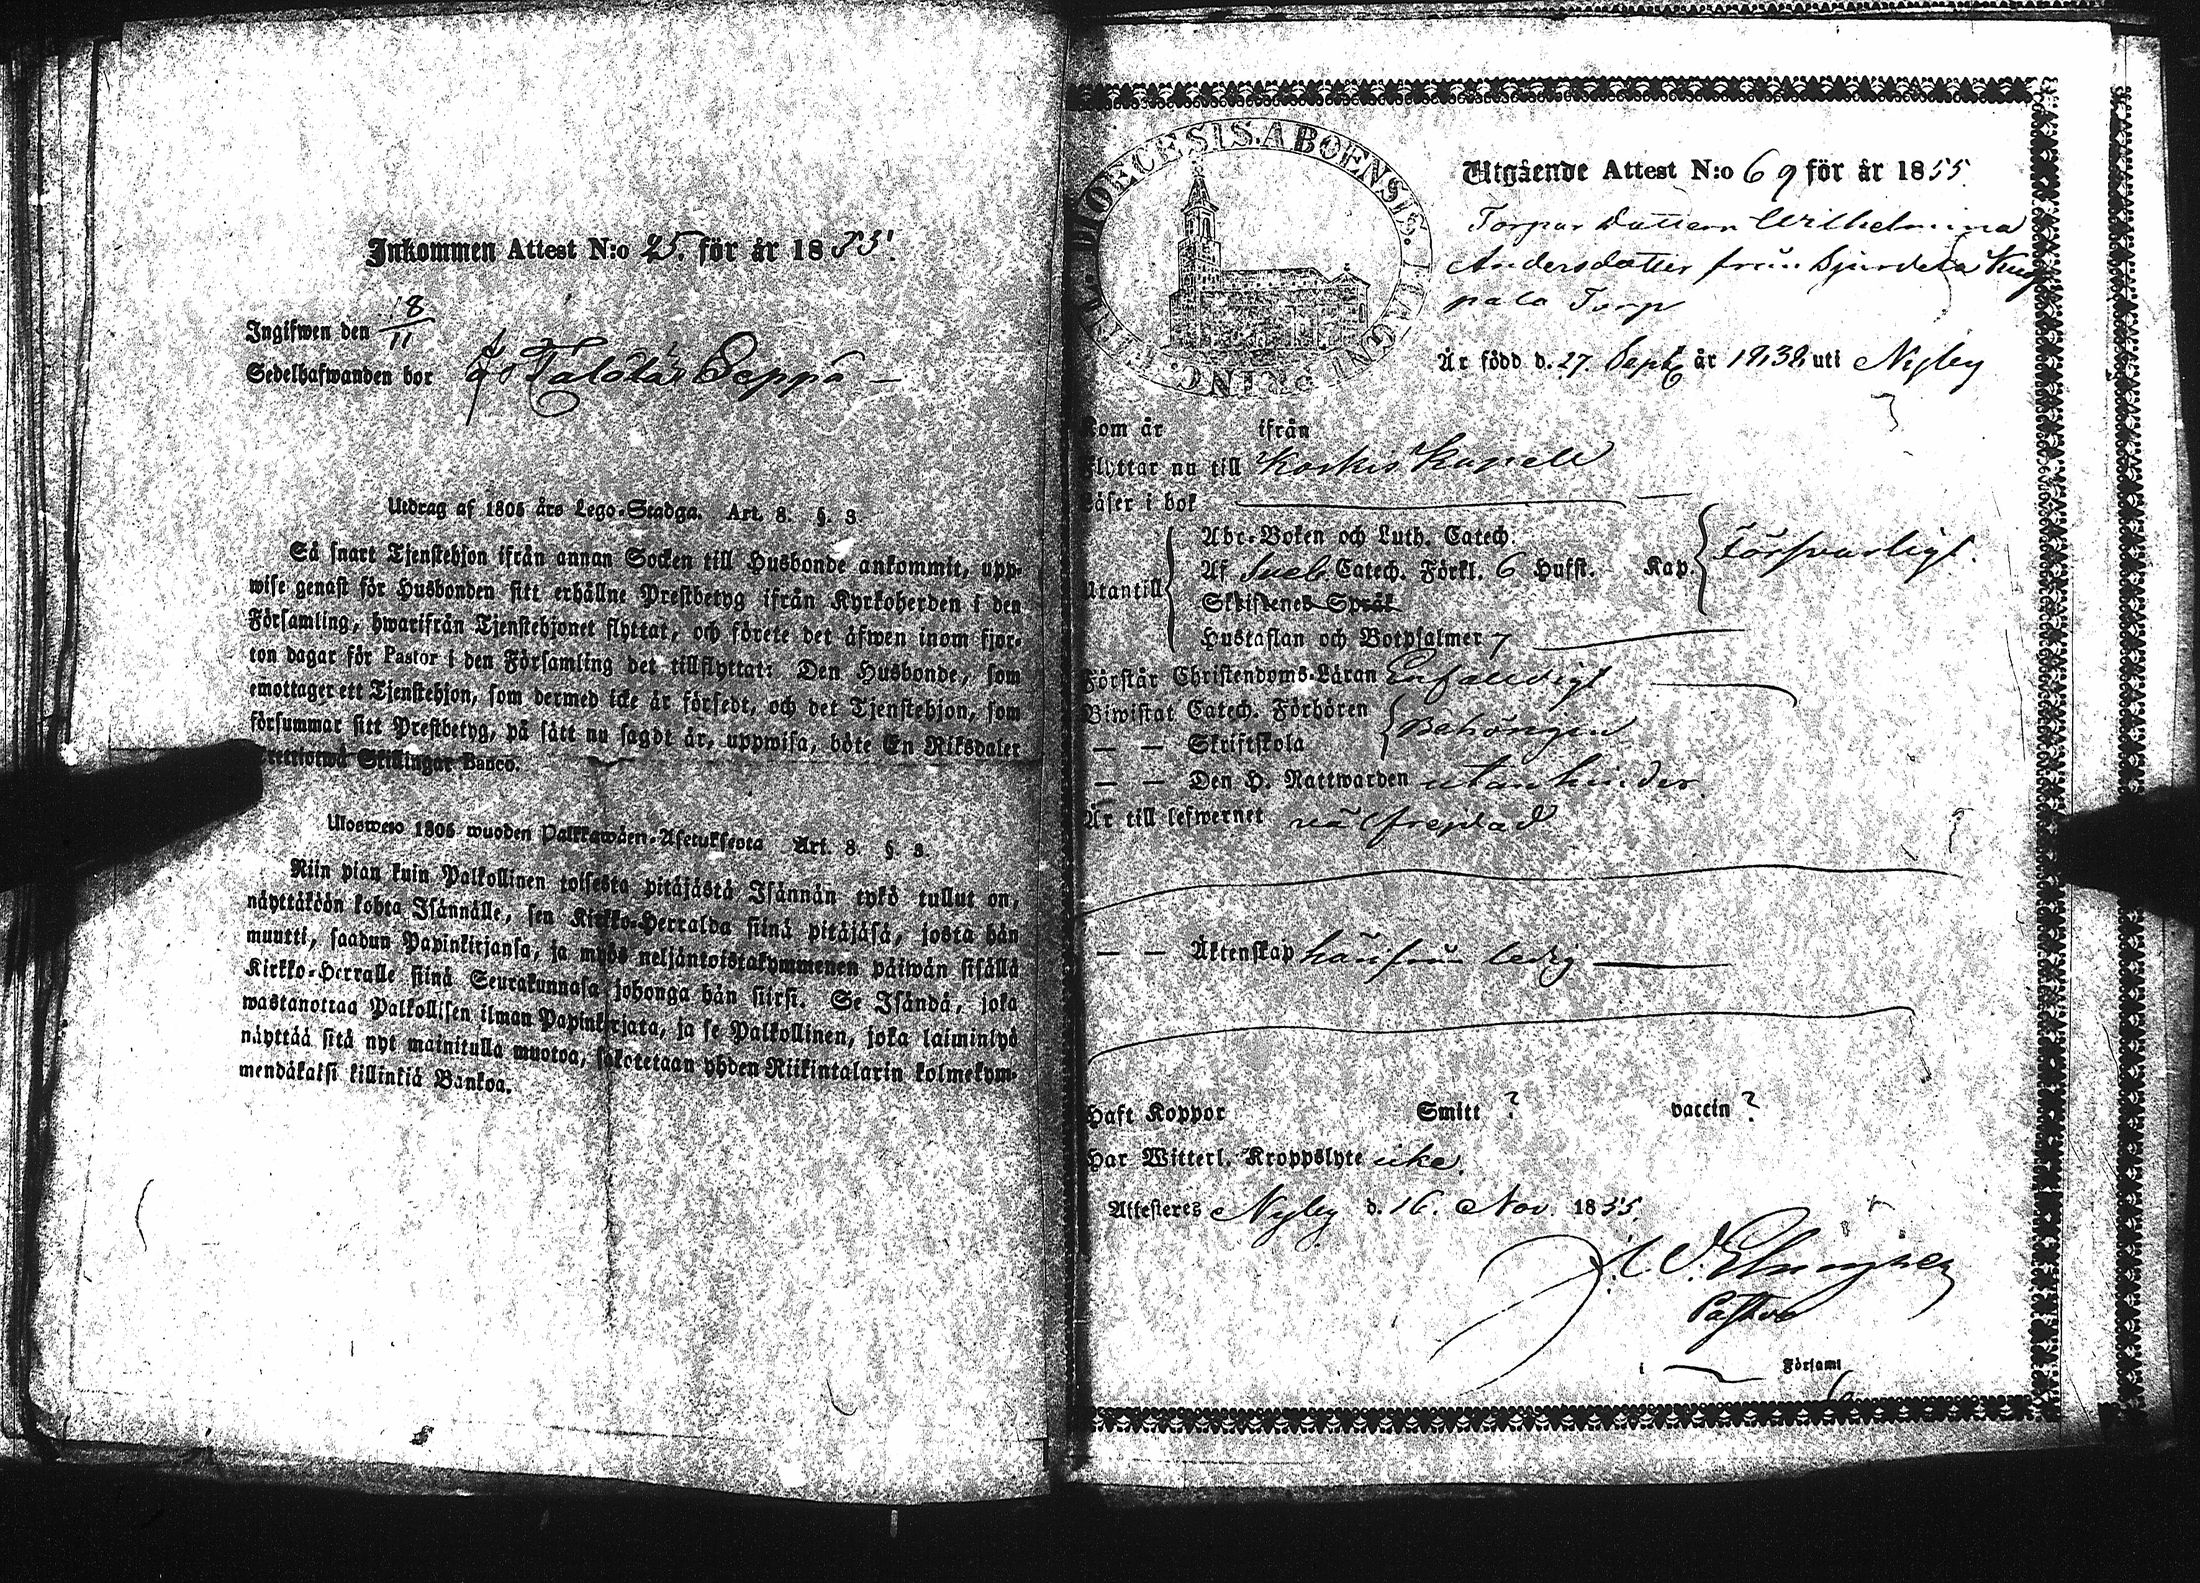 Inkommen Attest N:o 25. för år 1855.
Ingifwen den 18/11
Sedelhafwanden bor på Talola Seppä —
Utdrag af 1805 års Lego-Stadga. Art. 8. §. 3.
Så snart Tjenstehjon ifrån annan Socken till Husbonde ankommit, upp-
wise genast för Husbonden sitt erhållne Prestbetyg ifrån Kyrkoherden i den
Församling, hwarifrån Tjenstehjonet flyttat, och förete det äfwen inom fjor-
ton dagar för Pastor i den Församling det tillflyttat: Den Husbonde, som
emottager ett Tjenstehjon, som dermed icke är försedt, och det Tjenstehjon, som
försummar sitt Prestbetyg, på sätt nu sagdt är, uppwisa, böte En Riksdaler
trettiotwå Skillingar Banco.
Ulosweto 1805 wuoden Palkkawäen-Asetuksesta Art. 8. §. 3.
Niin pian kuin Palkollinen toisesta pitäjästä Isännän tykö tullut on,
näyttäköön kohta Isännälle, sen Kirkko-Herralda siinä pitäjäsä, josta hän
muutti, saadun Papinkirjansa, ja myös neljäntoistakymmenen päiwän sisällä
Kirkko-Herralle siinä Seurakunnasa johonga hän siirsi. Se Isändä, joka
wastanottaa Palkollisen ilman Papinkirjata, ja se Palkollinen, joka laiminlyö
näyttää sitä nyt mainitulla muotoa, sakotetaan yhden Riikintalarin kolmekym-
mendäkaksi killinkiä Bankoa.
DIOECESIS. ABOENSIS.
Utgående Attest N:o 69 för år 1855
Torpar Dottern Wilhelmina
Andersdotter från
pala Torp
Är född d. 27. Septb år 1838 uti Nyby
Kom år ifrån
Flyttar nu till Koskis Kapell
Läser i bok
Abc-Boken och Luth. Catech.
Af Sveb. Catech. Förkl. 6 Hufst. Kap. Försvarligt.
Utantill Skriftenes Språk
Hustaflan och Botpsalmer 7
Förstår Christendoms-Läran Enfaldigt
Biwistat Catech. Förhören
— — Skriftskola Behörigen
— — Den H. Nattwarden utan hinder.
Är till lefwernet välfrejdad
— — Äktenskap härifrån ledig
Haft Koppor Smitt ? vaccin ?
Har Witterl. Kroppslyte icke.
Attesteres Nyby d. 16. Nov. 1855.
Pastor
i Församl.